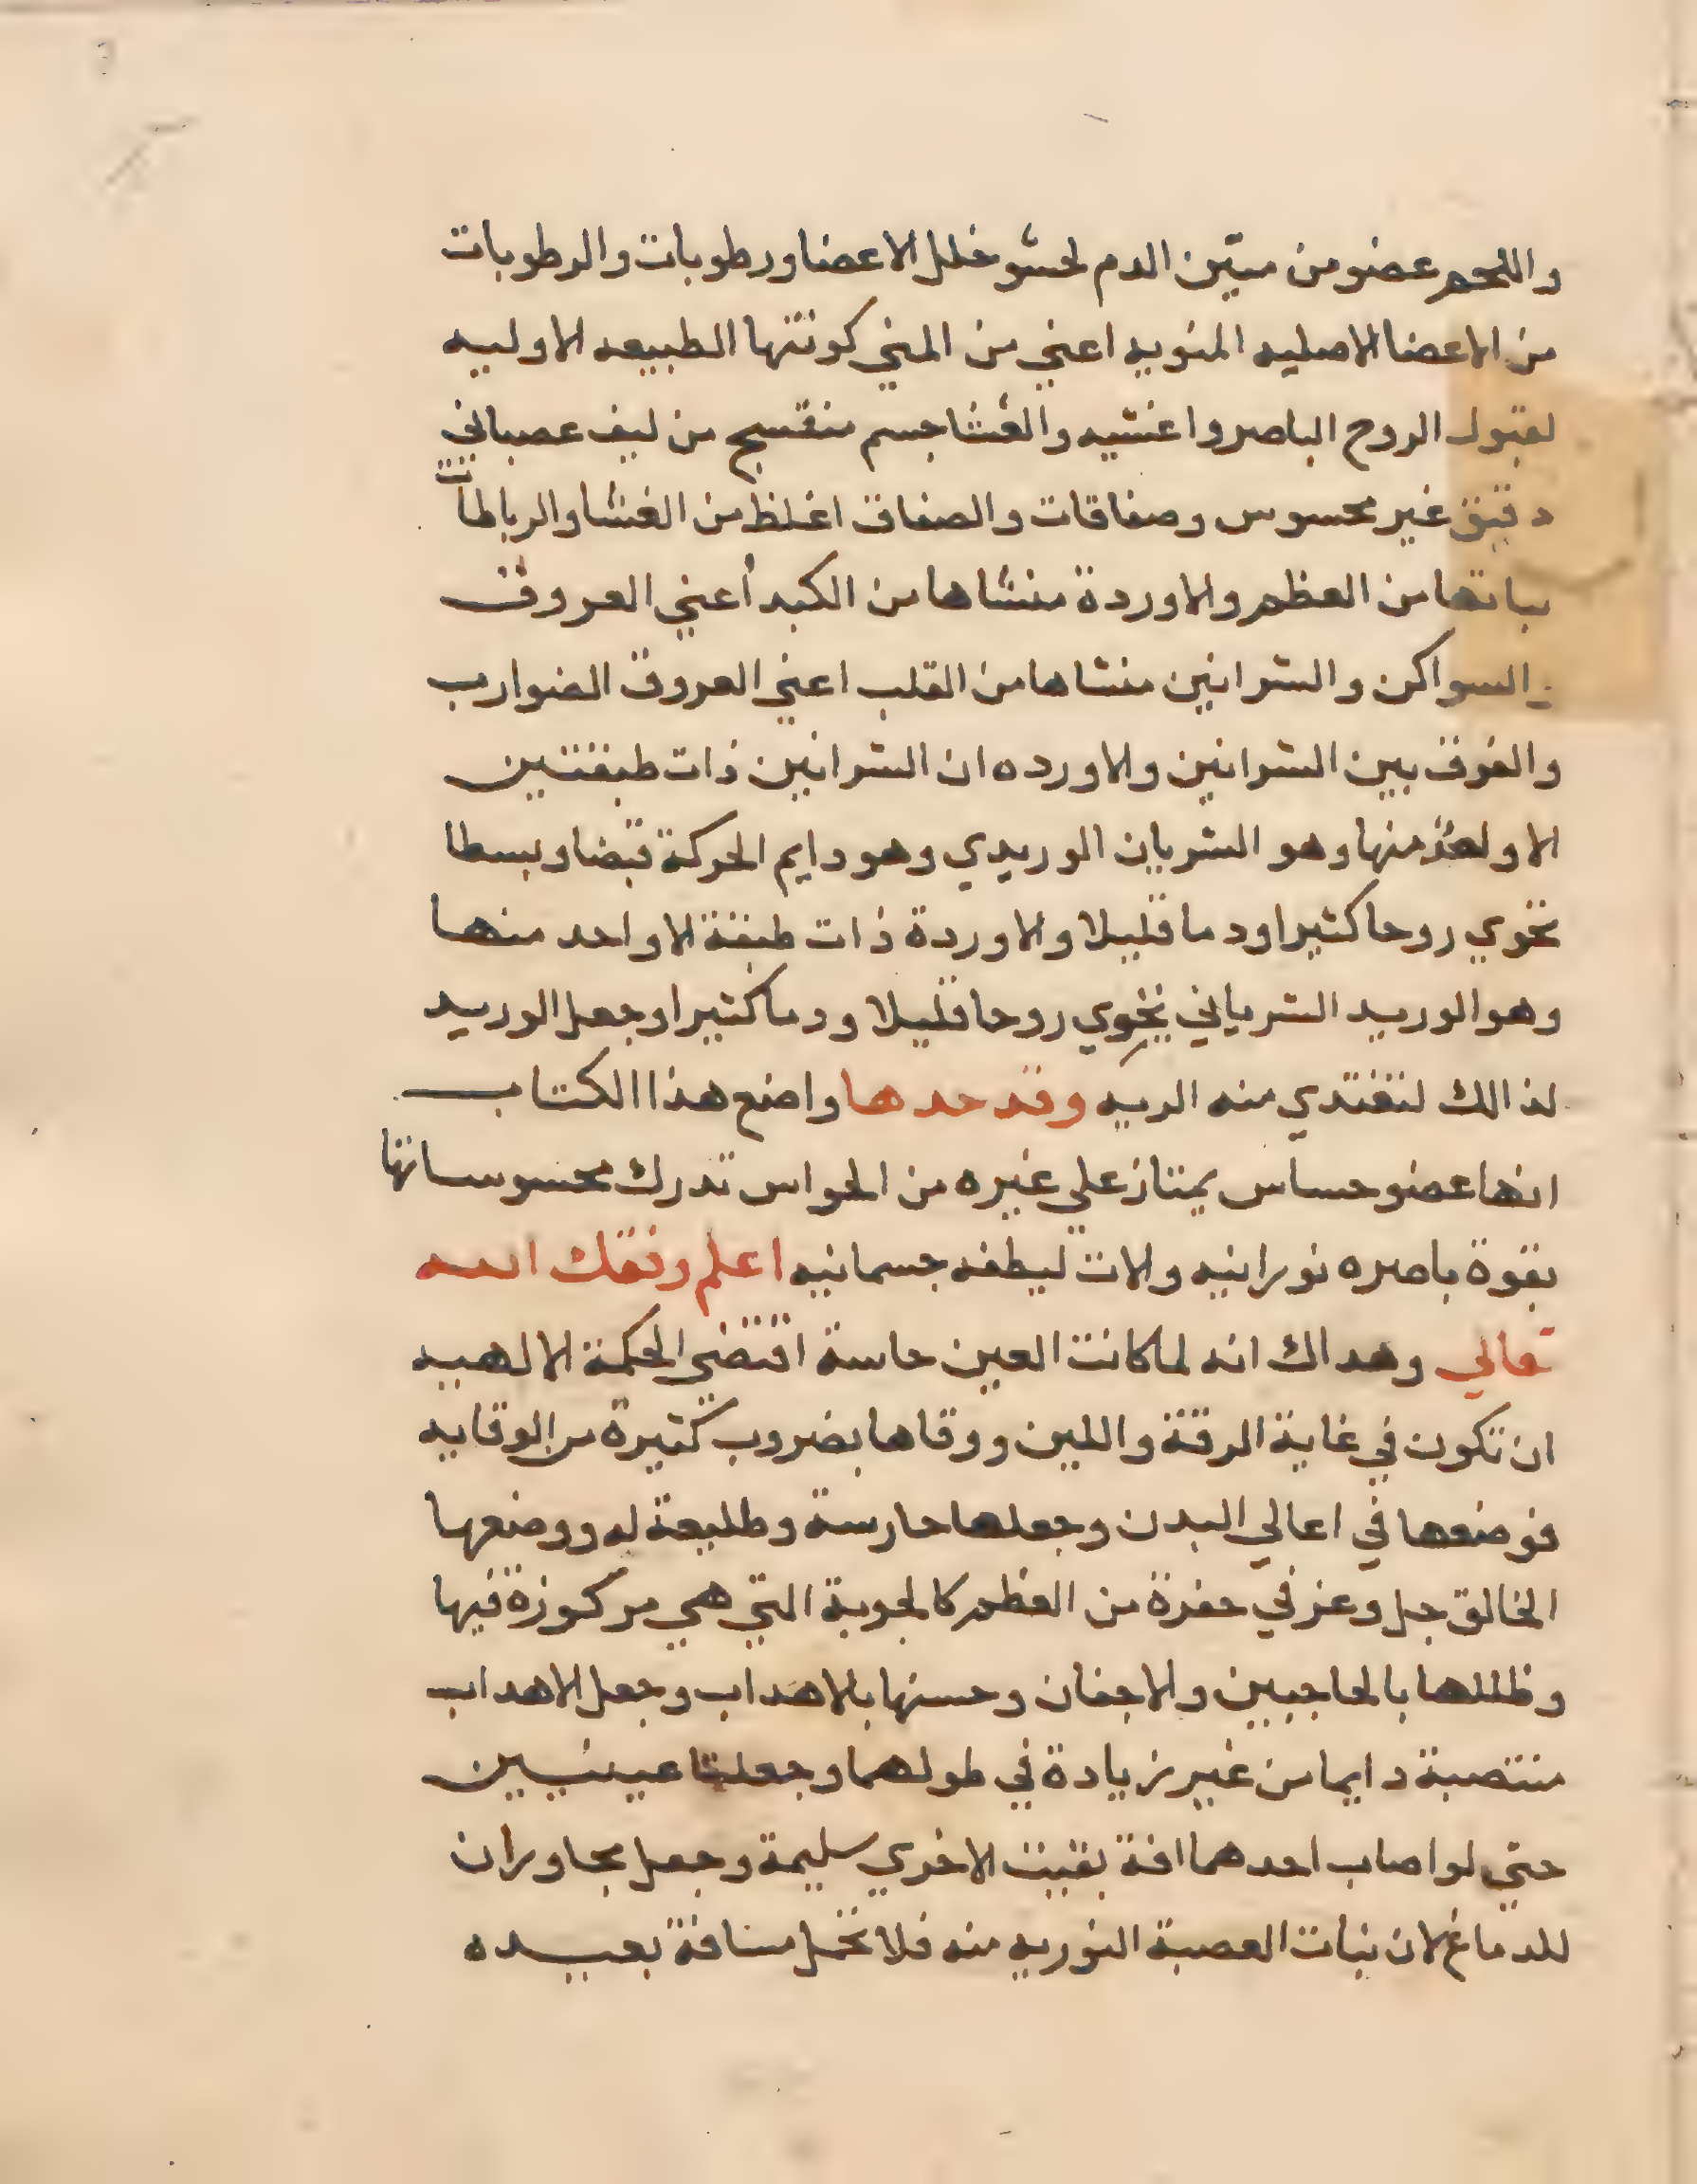 واللحم عضو من متين الدم لحشو خلل الاعضا ورطوبات والرطوبات
من الاعضا الاصليه المنويه اعني من المني كونتها الطبيعه الاوليه
لقبول الروح الباصر واغشيه والغشا جسم منتسج من ليف عصباني
دقيق غير محسوس وصفاقات والصفاق اغلظ من الغشا والرباطات
نباتها من العظم والاوردة منشاها من الكبد أعني العروق
والسواكن والشرايين منشاها من القلب اعني العروق الضوارب
والفرق بين الشرايين والاورده ان الشرايين ذات طبقتين
الا واحد منها وهو الشريان الوريدي وهو دايم الحركة قبضا وبسطا
تحوي روحا كثيرا ودما قليلا والاوردة ذات طبقة الا واحد منها
وهو الوريد الشرياني يحوي روحا قليلا ودما كثيرا وجعل الوريد
لذالك لتغتدي منه الريه وقد حدها واضع هذا الكتاب
انها عضو حساس يمتاز علي غيره من الحواس تدرك محسوساتها
بقوة باصره نورانيه والات ليطفه جسمانيه اعلم وفقك الله
تعالي وهداك انه لما كانت العين حاسة اقتضي الحكمة الالهيه
ان تكون في غاية الرقة واللين ووقاها بضروب كثيرة من الوقايه
فوضعها في اعالي البدن وجعلها حارسة وطليعة له ووضعها
الخالق جل وعز في حفرة من العظم كالجوبة التي هي مركوزة فيها
وظللها بالحاجبين والاجفان وحسنها بالاهداب وجعل الاهداب
منتصبة دايما من غير زيادة في طولهما وجعلتا عينين
حتي لو اصاب احدهما افة بقيت الاخري سليمة وجعل مجاوران
للدماغ لان نبات العصبة النوريه منه فلا تحمل مسافة بعيده